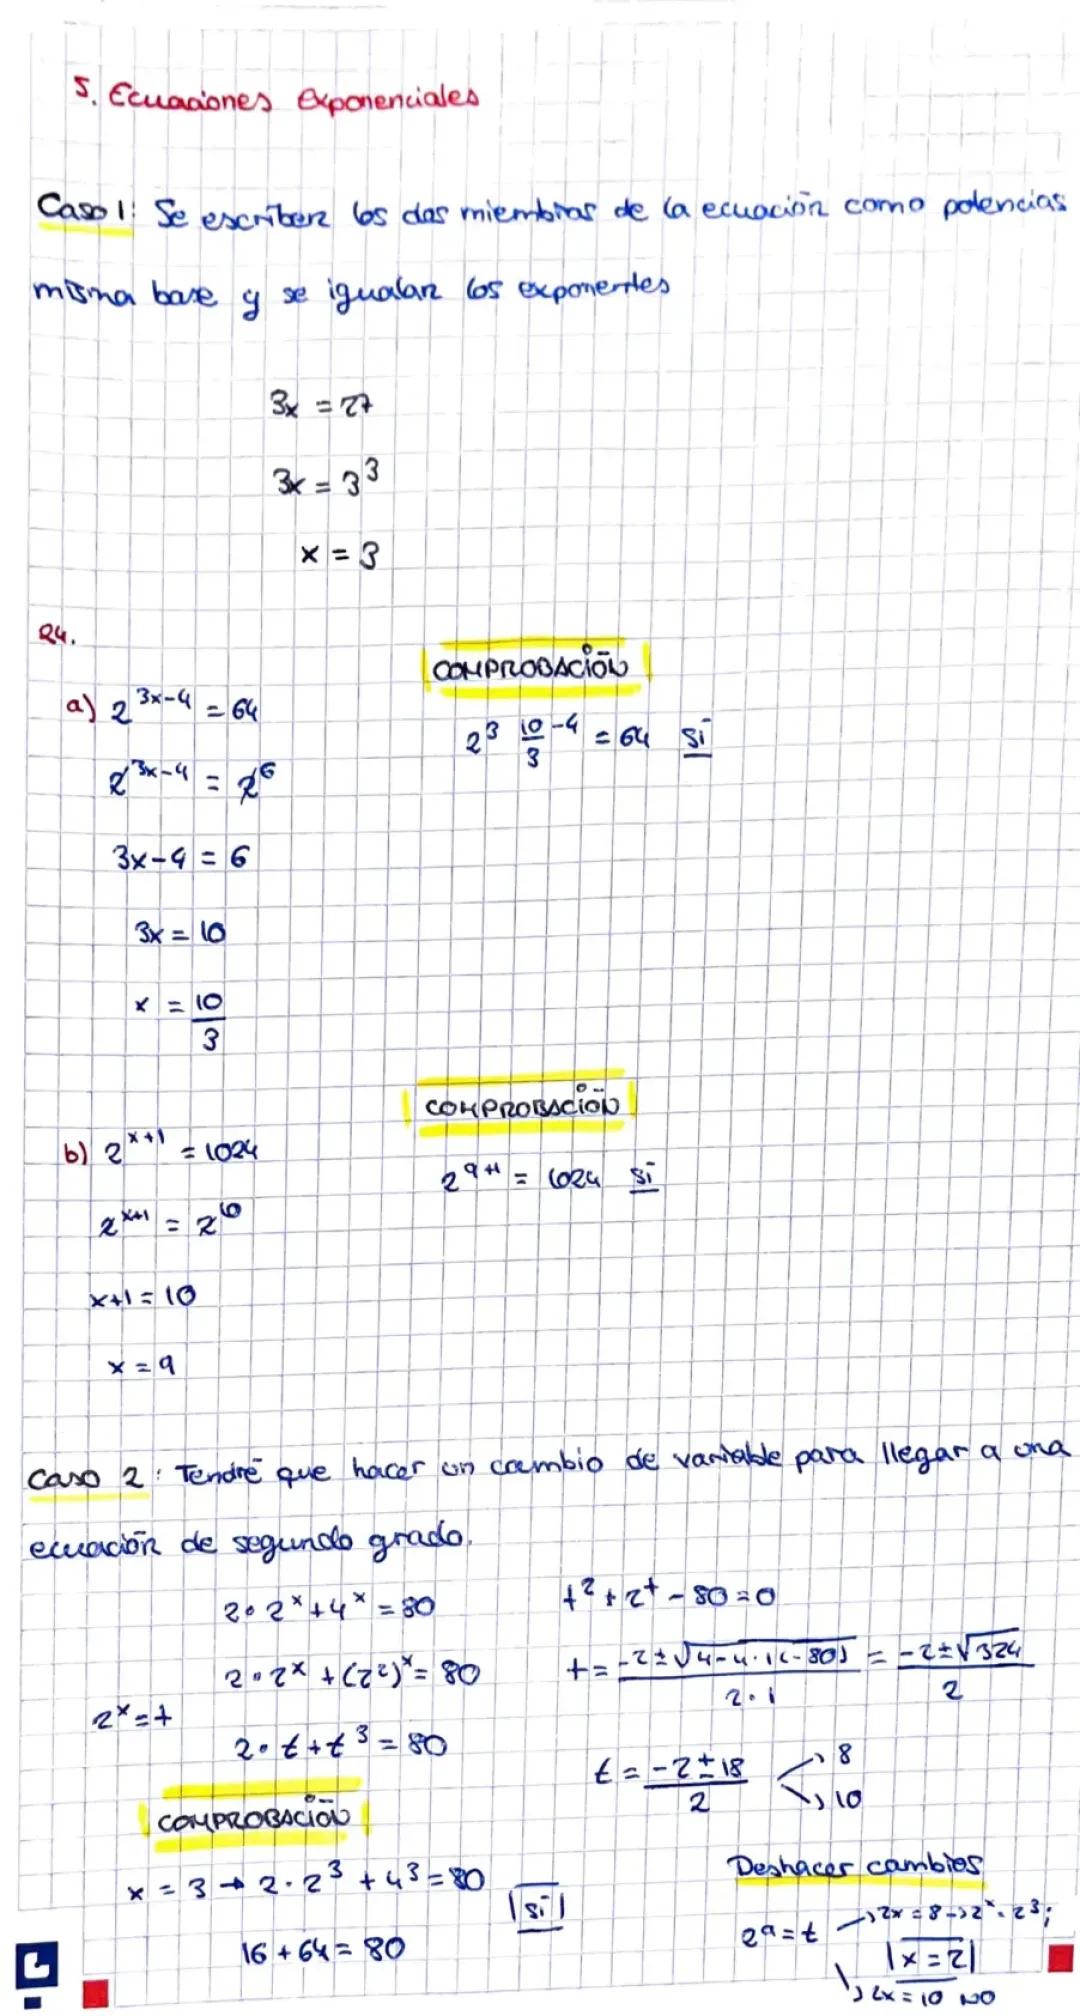 5. Ecuaciones Exponenciales
Caso 1: Se escriben los dos miembros de la ecuación como potencias
misma base y se igualan los exponentes
3x = 27
3x = 3³
x = 3
24.
COMPROBACIÓN
a) 2^(3x-4) = 64
2³ 10/3 -4 = 64 sí
2^(3x-4) = 2⁶
3x-4 = 6
3x = 10
x = 10/3
COMPROBACIÓN
b) 2^(x+1) = 1024
2^(9+1) = 1024 sí
2^(x+1) = 2^10
x+1 = 10
x = 9
Caso 2: Tendré que hacer un cambio de variable para llegar a una
ecuación de segundo grado.
2·2ˣ+4ˣ = 80
2·2ˣ + (2²)ˣ = 80
2ˣ = t
2·t+t³ = 80
t²+2t-80=0
t = (-2±√(4-4·1(-80)))/(2·1) = (-2±√324)/2
t = (-2±18)/2 → 8
→ 10
COMPROBACIÓN
x = 3 → 2·2³ + 4³ = 80
sí
16 + 64 = 80
Deshacer cambios
2^a = t → 2x = 8 → 2ˣ = 2³;
|x = 2|
→ 2x = 10 NO